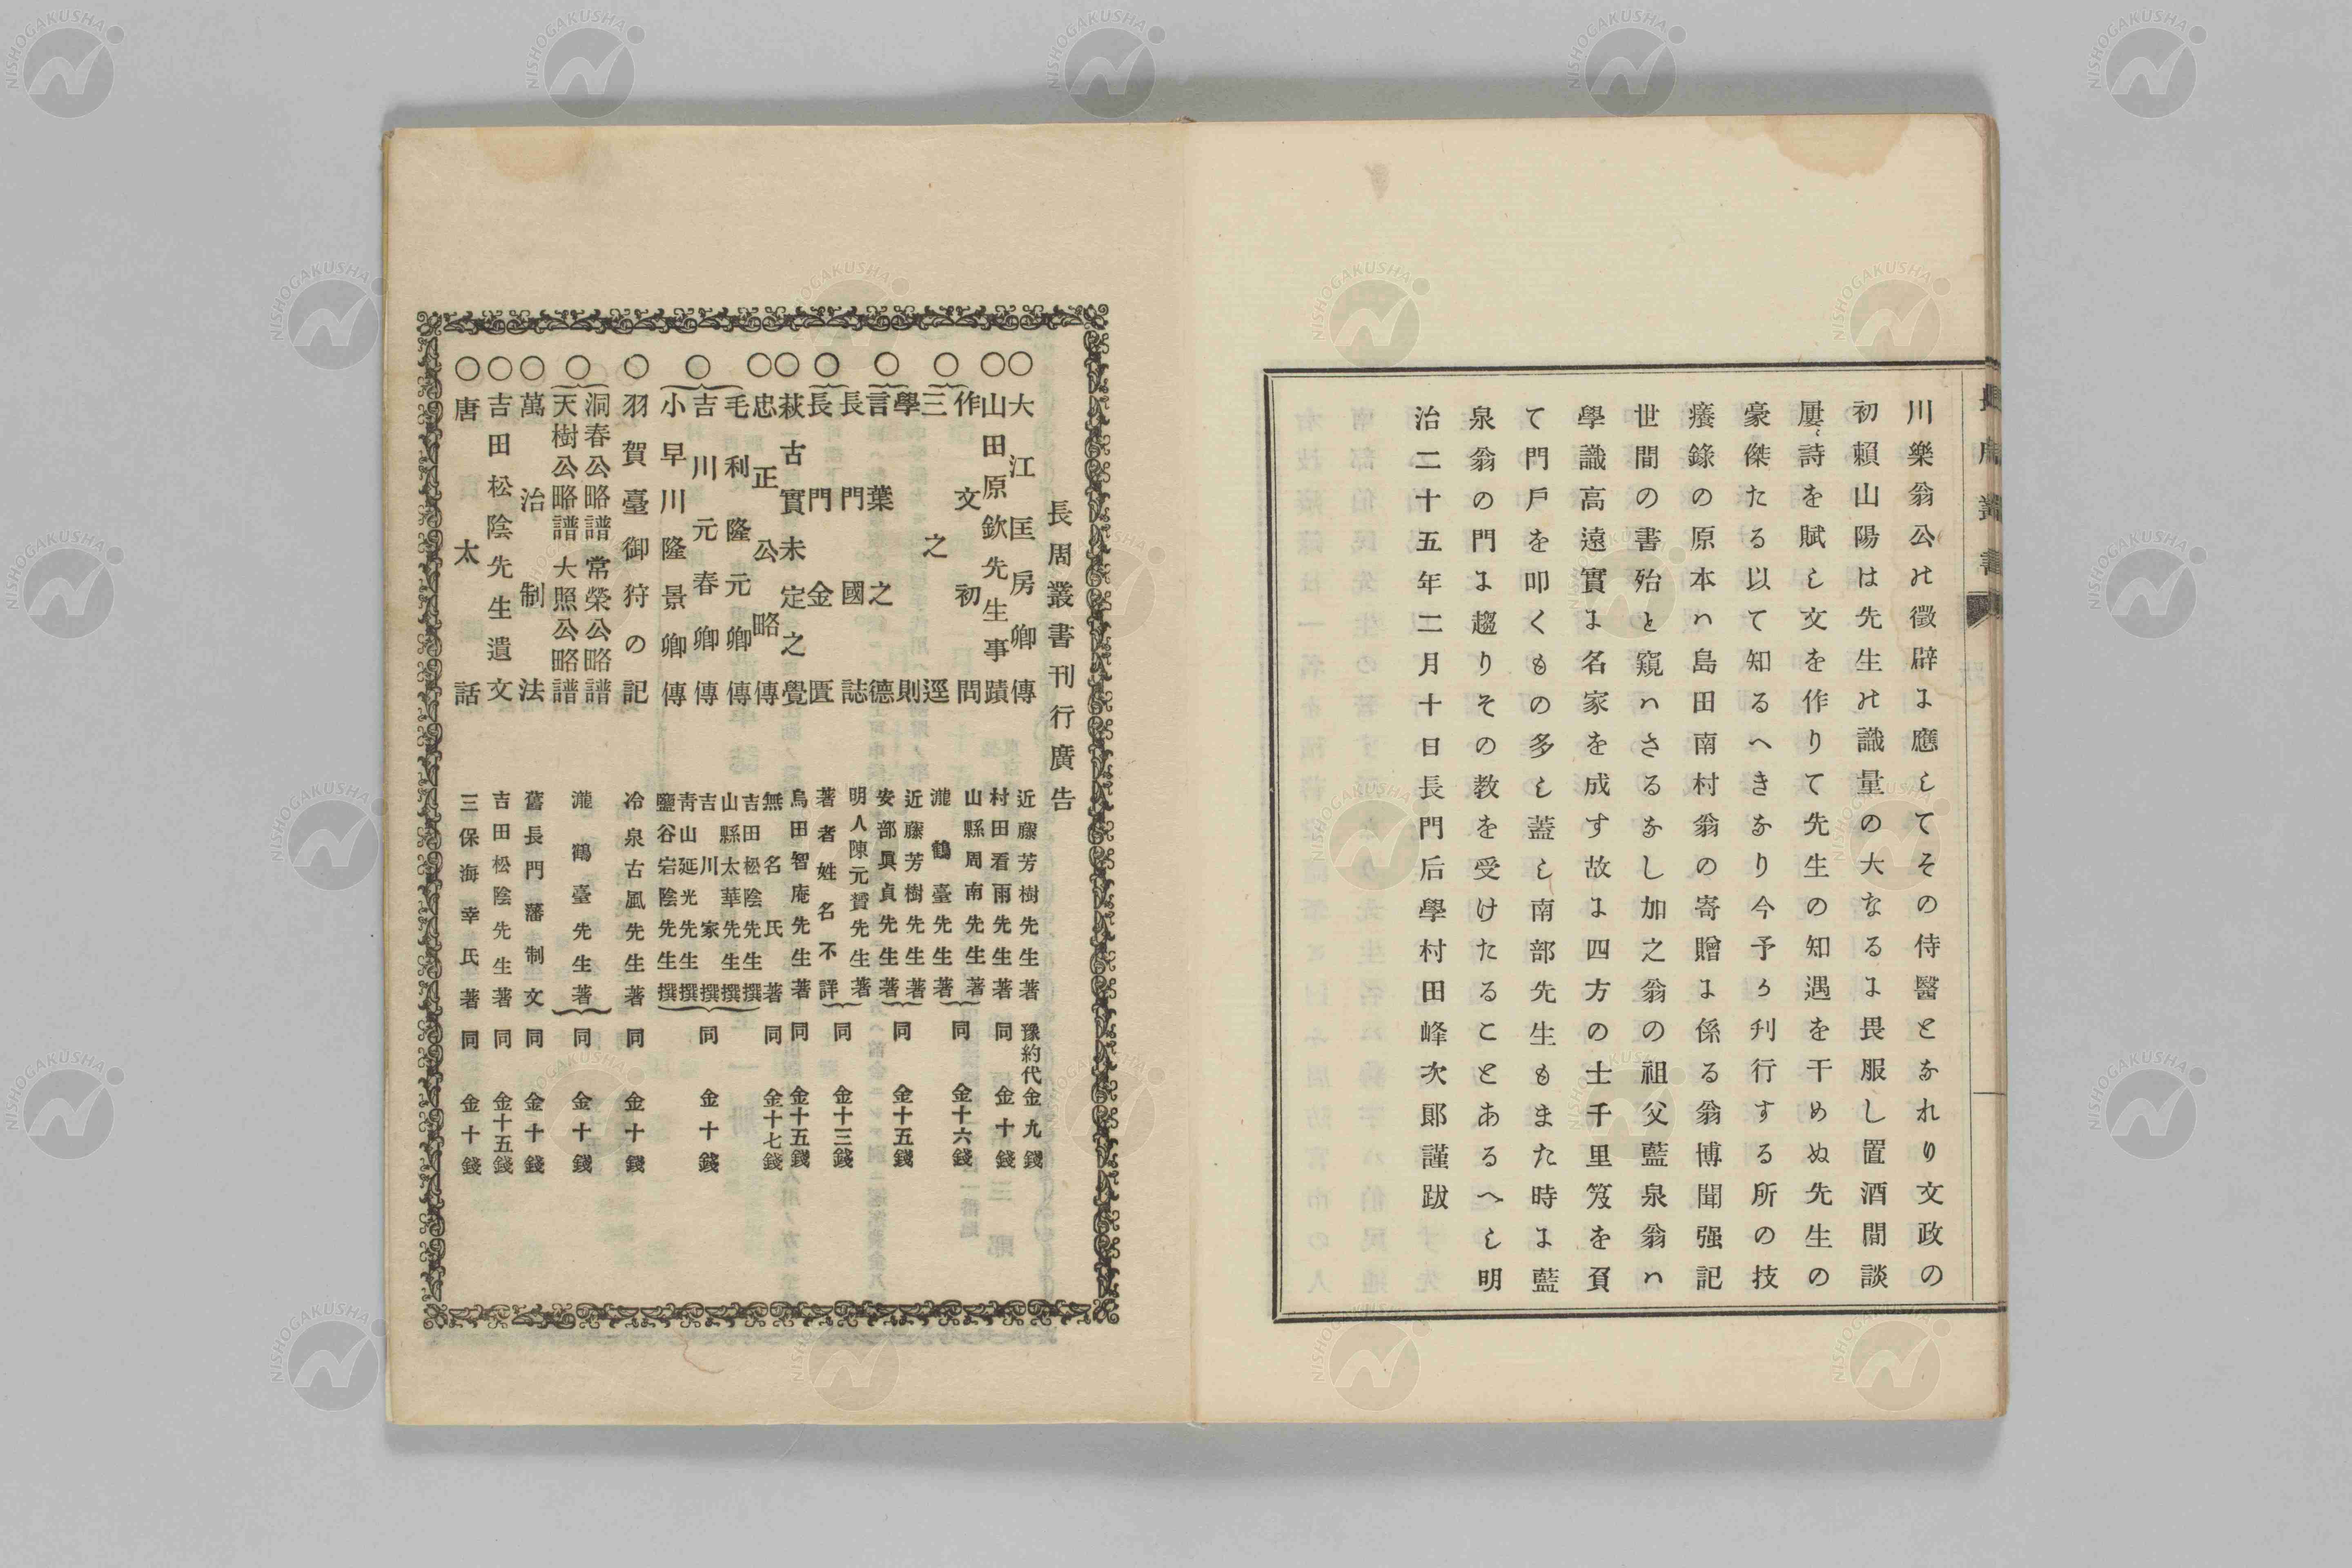 川樂翁公の徵辟に應してその侍醫となれり文政の
初賴山陽は先生の識量の大なるに畏服し置酒間談
屢〻詩を賦し文を作りて先生の知遇を干めぬ先生の
豪傑たる以て知るへきなり今予か刋行する所の技
癢錄の原本ハ島田南村翁の寄贈に係る翁博聞强記
世間の書殆と窺ハさるなし加之翁の祖父藍泉翁ハ
學識高遠實に名家を成す故に四方の士千里笈を負
て門戶を叩くもの多し蓋し南部先生もまた時に藍
泉翁の門に趨りその教を受けたることあるへし明
治二十五年二月十日長門后學村田峰次郞謹跋
長周叢書刊行廣告
○大江匡房卿傳 近藤芳樹先生著 豫約代金九錢
○山田原欽先生事蹟 村田看雨先生著 同 金十錢
○作文初問 山縣周南先生著
三之逕 瀧鶴臺先生著 同 金十六錢
○學則 近藤芳樹先生著
言葉之德 安部眞貞先生著 同 金十五錢
○長門國誌 明人陳元贇先生著
長門金匱 著者姓名不詳 同 金十三錢
○萩古實未定之覺 烏田智庵先生著 同 金十五錢
○忠正公略傳 無名氏著 同 金十七錢
○毛利隆元卿傳 吉田松陰先生撰 山縣太華先生撰
吉川元春卿傳 吉川家撰 同 金十錢
小早川隆景卿傳 靑山延光先生撰 鹽谷宕陰先生撰
○羽賀臺御狩の記 冷泉古風先生著 同 金十錢
○洞春公略譜 常榮公略譜
天樹公略譜 大照公略譜 瀧鶴臺先生著 同 金十錢
○萬治制法 舊長門藩制文 同 金十錢
○吉田松陰先生遺文 吉田松陰先生著 同 金十五錢
○唐太話 三保海幸氏著 同 金十錢